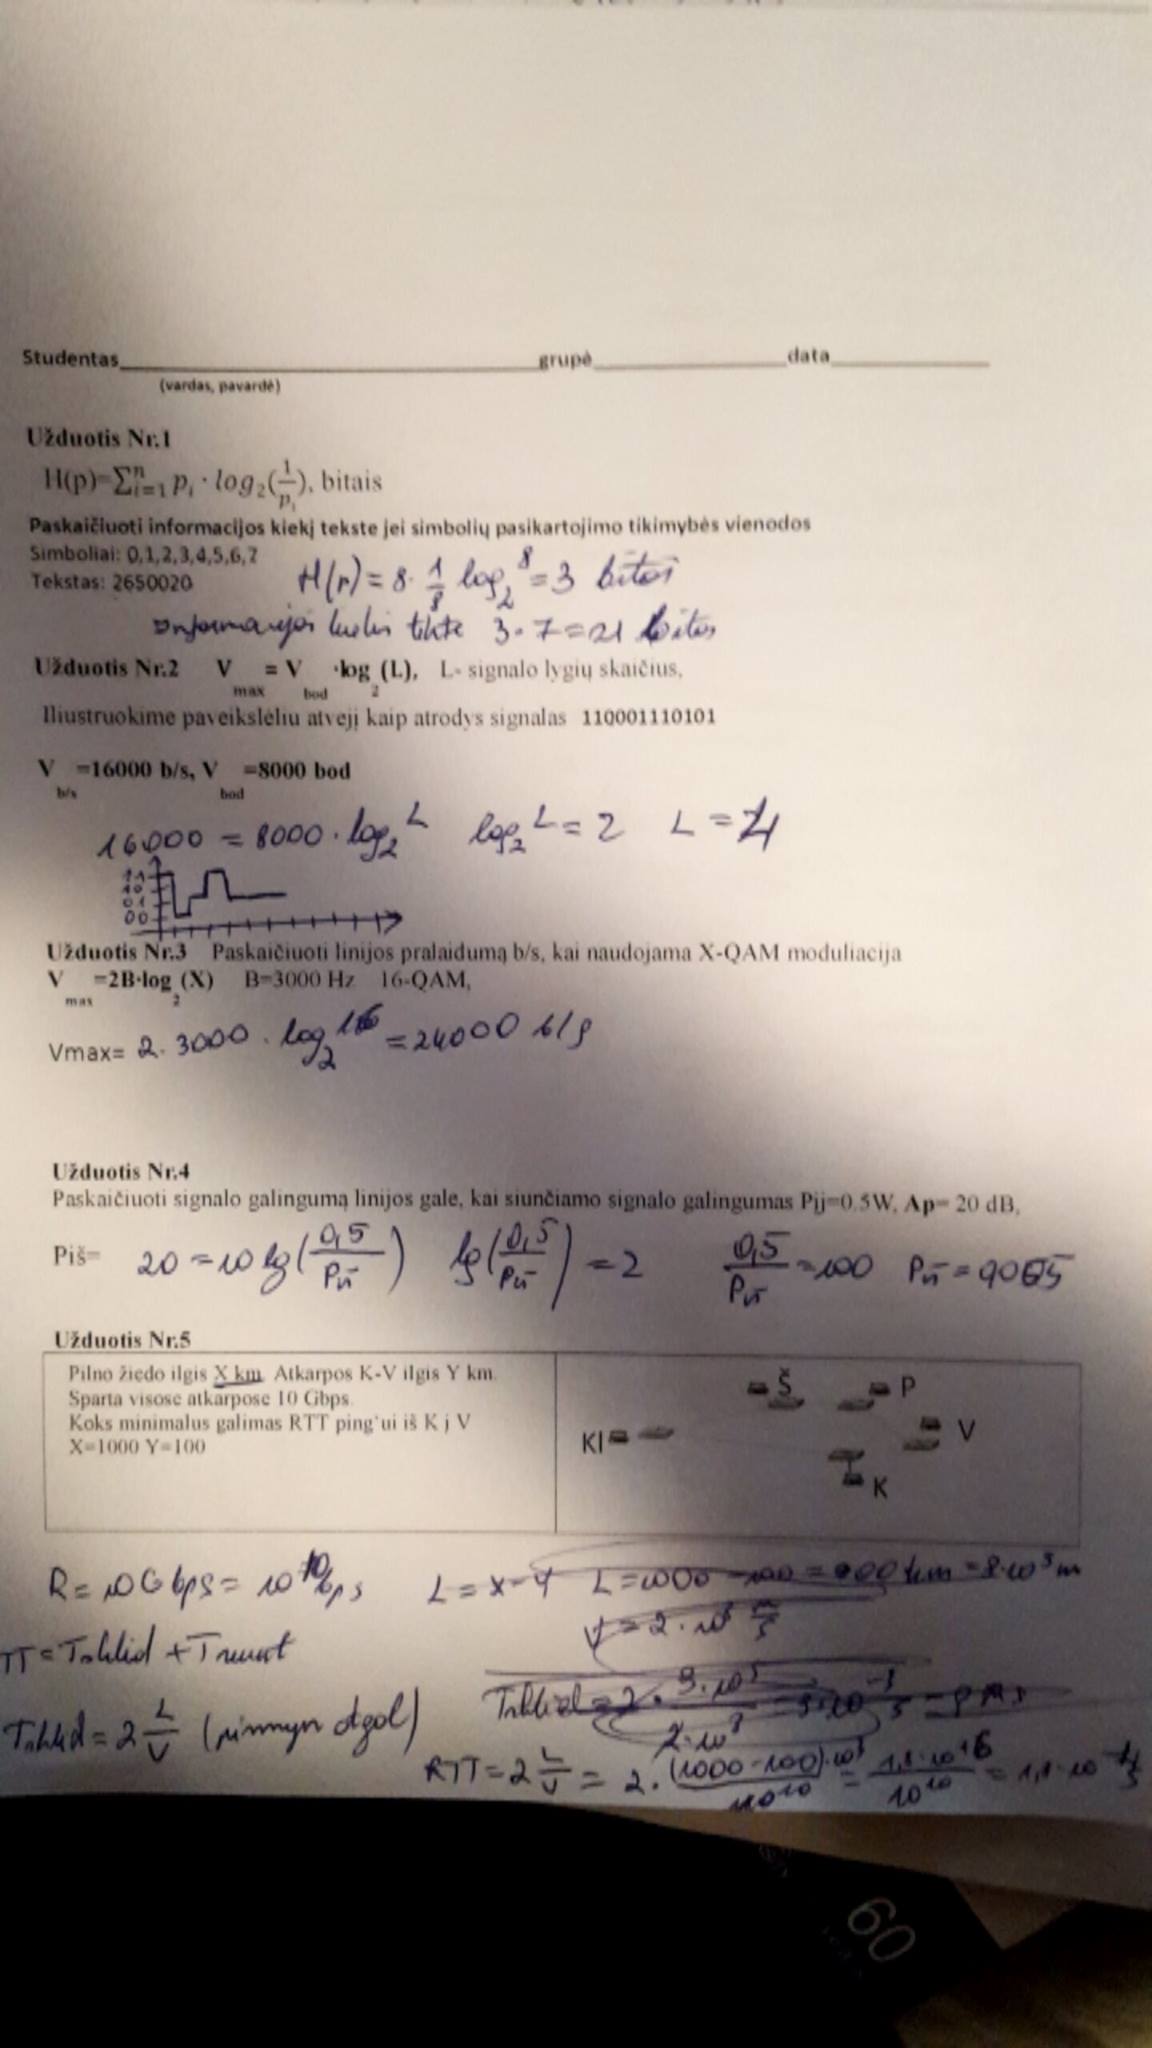 Studentas____________________grupė____________data____________
(vardas, pavardė)
Užduotis Nr.1
H(p)=∑ⁿᵢ₌₁ pᵢ · log₂(1/pᵢ), bitais
Paskaičiuoti informacijos kiekį tekste jei simbolių pasikartojimo tikimybės vienodos
Simboliai: 0,1,2,3,4,5,6,7
Tekstas: 2650020
H(r) = 8 · 1/8 log₂ 8 = 3 bitos
3 · 7 = 21 bitos
Užduotis Nr.2 V max = V bod ·log 2 (L), L- signalo lygių skaičius,
Iliustruokime paveikslėliu atvejį kaip atrodys signalas 110001110101
V b/s =16000 b/s, V bod =8000 bod
16000 = 8000 · log₂ L log₂ L = 2 L = 4
11
10
01
00
Užduotis Nr.3 Paskaičiuoti linijos pralaidumą b/s, kai naudojama X-QAM moduliacija
V max =2B·log 2 (X) B=3000 Hz 16-QAM,
Vmax= 2 · 3000 · log₂ 16 = 24000 b/s
Užduotis Nr.4
Paskaičiuoti signalo galingumą linijos gale, kai siunčiamo signalo galingumas Pij=0.5W, Ap= 20 dB,
Piš= 20 = 10 lg(0,5/Piš) lg(0,5/Piš) = 2 0,5/Piš = 100 Piš = 0,005
Užduotis Nr.5
Pilno žiedo ilgis X km. Atkarpos K-V ilgis Y km.
Sparta visose atkarpose 10 Gbps.
Koks minimalus galimas RTT ping`ui iš K į V
X=1000 Y=100
Š
P
Kl
V
K
R = 10 Gbps = 10¹⁰ bps L = X - Y
V = 2 · 10⁸ m/s
RTT = 2 L/V = 2 · (1000 - 100) · 10³ / 10¹⁰